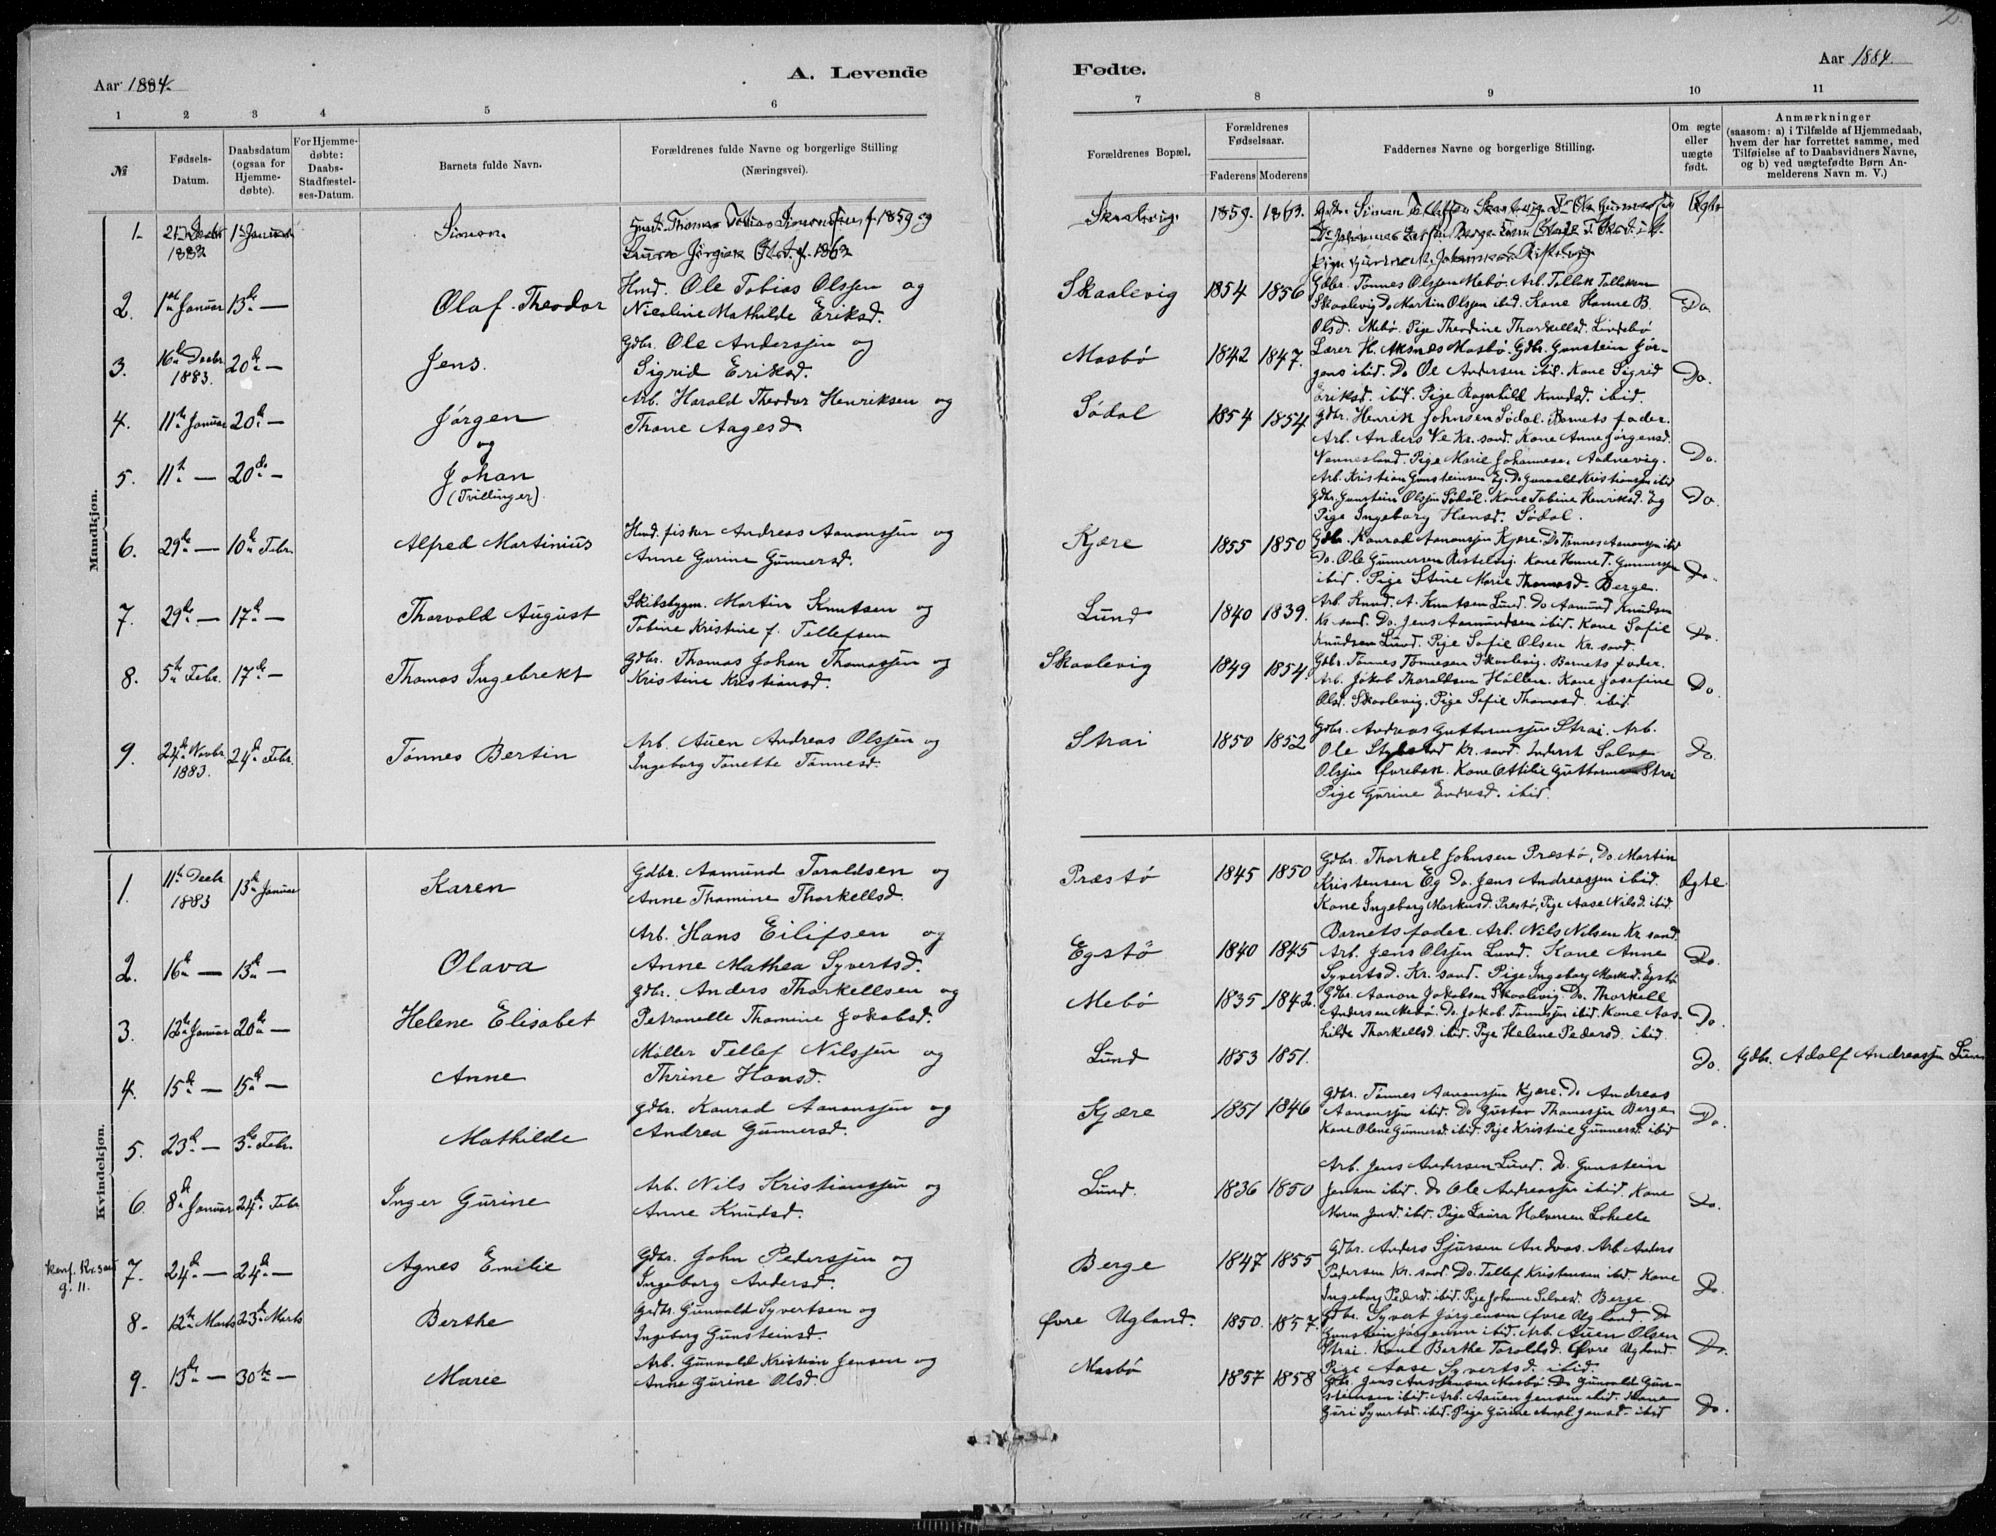 2
Aar 1884.
A. Levende
Fødte.
Aar 1884.
1 2 3 4 5 6
7 8 9 10 11
№
Fødsels-Datum.
Daabsdatum (ogsaa for Hjemmedøbte).
For Hjemmedøbte: Daabs-Stadfæstelses-Datum.
Barnets fulde Navn.
Forældrenes fulde Navne og borgerlige Stilling
(Næringsvei).
Forældrenes Bopæl.
Forældrenes Fødselsaar.
Faderens Moderens
Faddernes Navne og borgerlige Stilling.
Om ægte eller uægte født.
Anmærkninger
(saasom: a) i Tilfælde af Hjemmedaab,
hvem der har forrettet samme, med
Tilføielse af to Daabsvidners Navne,
og b) ved uægtefødte Børn Anmelderens Navn m. V.)
Mandkjøn.
1. 1883 Simon. Thomas Tobias f. 1859 og
Skaalevig. 1859. 1863. Ægte
2. 1ste Januar 13de — Olaf Theodor Hmd. Ole Tobias Olssen og
Nicoline Mathilde Eriksd.
Skaalevig 1854 1856 Gdbr. Tønnes Olssen Mebø. Arb. Tellek Telleksen
Skaalevig Do Martin Olssen ibid. Kone Hanne B.
Olsd. Mebø. Pige Theodine Thorkellsd. Lindebø
Do.
3. 16de Decbr. 1883. 20de — Jens. Gdbr. Ole Anderssen og
Sigrid Eriksd.
Mosbø 1842 1847. Lærer H. Aksnes Mosbø. Gdbr. Gunstein Jør-
gens ibid. Do Ole Andersen ibid. Kone Sigrid
Eriksd. ibid. Pige Ragnhild Knudsd. ibid.
Do.
4. 11te Januar 20de — Jørgen Arb. Harald Theodor Henriksen og
Thone Aagesd.
og
Sødal 1854 1854 Gdbr. Henrik Johnsen Sødal. Barnets fader.
Arb. Anders Ve Kr.sand. Kone Anne Jørgensd.
Vennesland. Pige Marie Johannese. Aadnevig.
Do.
5. 11te — 20de — Johan
(Tvillinger)
Arb. Kristian Gunsteinsen Eg. Do Gunvald Kristiansen ibid
Gdbr. Gunstein Olssen Sødal. Kone Tobine Henriksd. Eg
Pige Ingeborg Hansd. Sødal.
Do.
6. 29de — 10de Febr. Alfred Martinius Hmd. fisker Andreas Aanonssen og
Anne Gurine Gunnersd.
Kjære 1855 1850 Gdbr. Konrad Aanonssen Kjære. Do Tønnes Aanonssen ibid
Do. Ole Gunnersen Ristelvig. Kone Hanne T. Gunnersen
ibid. Pige Stine Marie Thomasd. Berge.
Do.
7. 29de — 17de — Thorvald August Skibstygm. Martin Knutsen og
Tobine Kristine f. Tellefsen
Lund 1840 1839. Arb. Knud. A. Knutsen Lund. Do Aamund Knudsen
Kr.sand. Do. Jens Aamundsen ibid. Kone Sofie
Knudsen Lund. Pige Sofie Olsen Kr.sand.
Do.
8. 5te Febr. 17de — Thomas Ingebrekt Gdbr. Thomas Johan Thomassen og
Kristine Kristiansd.
Skaalevig 1849 1854. Gdbr. Tønnes Tønnesen Skaalevig. Barnets fader.
Arb. Jakob Thoraldsen Høllen. Kone Josefine
Olsd. Skaalevig. Pige Sofie Thomasd. ibid
Do.
9. 24de Novbr. 1883. 24de Febr. Tønnes Bertin Arb. Auen Andreas Olssen og
Ingeborg Tonette Tønnesd.
Strai 1850 1852 Gdbr. Andreas Guttormssen Strai. Arb.
Ole Kr.sand. Inderst Salve
Olssen Øvrebøk. Kone Ottilie Guttormsen Strai
Pige Gurine Endresd. ibid.
Do.
Kvindekjøn.
1. 11te Decbr. 1883 13de Januar Karen Gdbr. Aamund Toraldsen og
Anne Thomine Thorkellsd.
Præstø 1845 1850 Gdbr. Thorkel Johnsen Præstø, Do. Martin
Kristensen Eg Do. Jens Andreassen ibid.
Kone Ingeborg Markusd. Præstø, Pige Aase Nilsd. ibid.
Ægte
2. 16de — 13de — Olava Arb. Hans Eilifsen og
Anne Mathea Syvertsd.
Egstø 1840 1845 Barnets fader. Arb. Nils Nilsen Kr.sand.
Arb. Jens Olssen Lund. Kone Anne
Syvertsd. Kr.sand. Pige Ingeborg Markd. Egstø
Do.
3. 12te Januar 20de — Helene Elisabet Gdbr. Anders Thorkellsen og
Petronelle Thomine Jokobsd.
Mebø 1835 1842. Gdbr. Aanon Jakobsen Skaalevig. Do. Thorkell
Andersen Mebø. Do. Jakob Tønnessen ibid. Kone Aas-
hilde Thorkellsd. ibid. Pige Helene Pedersd. ibid.
Do.
4. 15de — 15de — Anne Møller Tellef Nilssen og
Thrine Hansd.
Lund 1853 1851. Do. Gdbr. Adolf Andreassen Lund
5. 23de — 3die Febr. Mathilde Gdbr. Konrad Aanonssen og
Andrea Gunnersd.
Kjære 1851 1846 Gdbr. Tønnes Aanonssen Kjære. Do Andreas
Aanonssen ibid. Do Gustav Thomassen Berge
Kone Olene Gunnersd. ibid. Pige Kristine Gunnersd. ibid
Do.
6. 8de Januar 24de Febr Inger Gurine Arb. Nils Kristianssen og
Anne Knudsd.
Lund. 1836 1850 Arb. Jens Andersen Lund. Do. Gunstein
Jensen ibid. Do Ole Andreassen ibid. Kone
Maren Jensd. ibid. Pige Laura Halversen Lohelle
Do.
konf. Kr.sand
g. 11.
7. 24de — 24de — Agnes Emilie Gdbr. John Pederssen og
Ingeborg Andersd.
Berge 1847 1855 Gdbr. Anders Sjursen Andaas. Arb. Anders
Pedersen Kr.sand. Do. Tellef Kristensen ibid. Kone
Ingeborg Pedersd. ibid. Pige Johanne Salvesd. Berge.
Do.
8. 12te Marts 23de Marts Berthe Gdbr. Gunvald Syvertsen og
Ingeborg Gunsteinsd.
Øvre Ugland. 1850. 1857. Gdbr. Syvert Jørgensen Øvre Ugland. Do
Gunstein Jørgensen ibid. Arb. Auen Olsen
Strai. Kone Berthe Toroldsd. Øvre Ugland.
Pige Aase Syvertsd. ibid.
Do.
9. 13de — 30te — Marie Arb. Gunvald Kristian Jensen og
Anne Gurine Olsd.
Mosbø 1857 1858 Gdbr. Jens Mosbø Do Gunvald Gun-
steinsen ibid. Arb. Aauen Jensen ibid. Kone
Guri Syvertsd. ibid. Pige Gurine Jensd. ibid
Do.